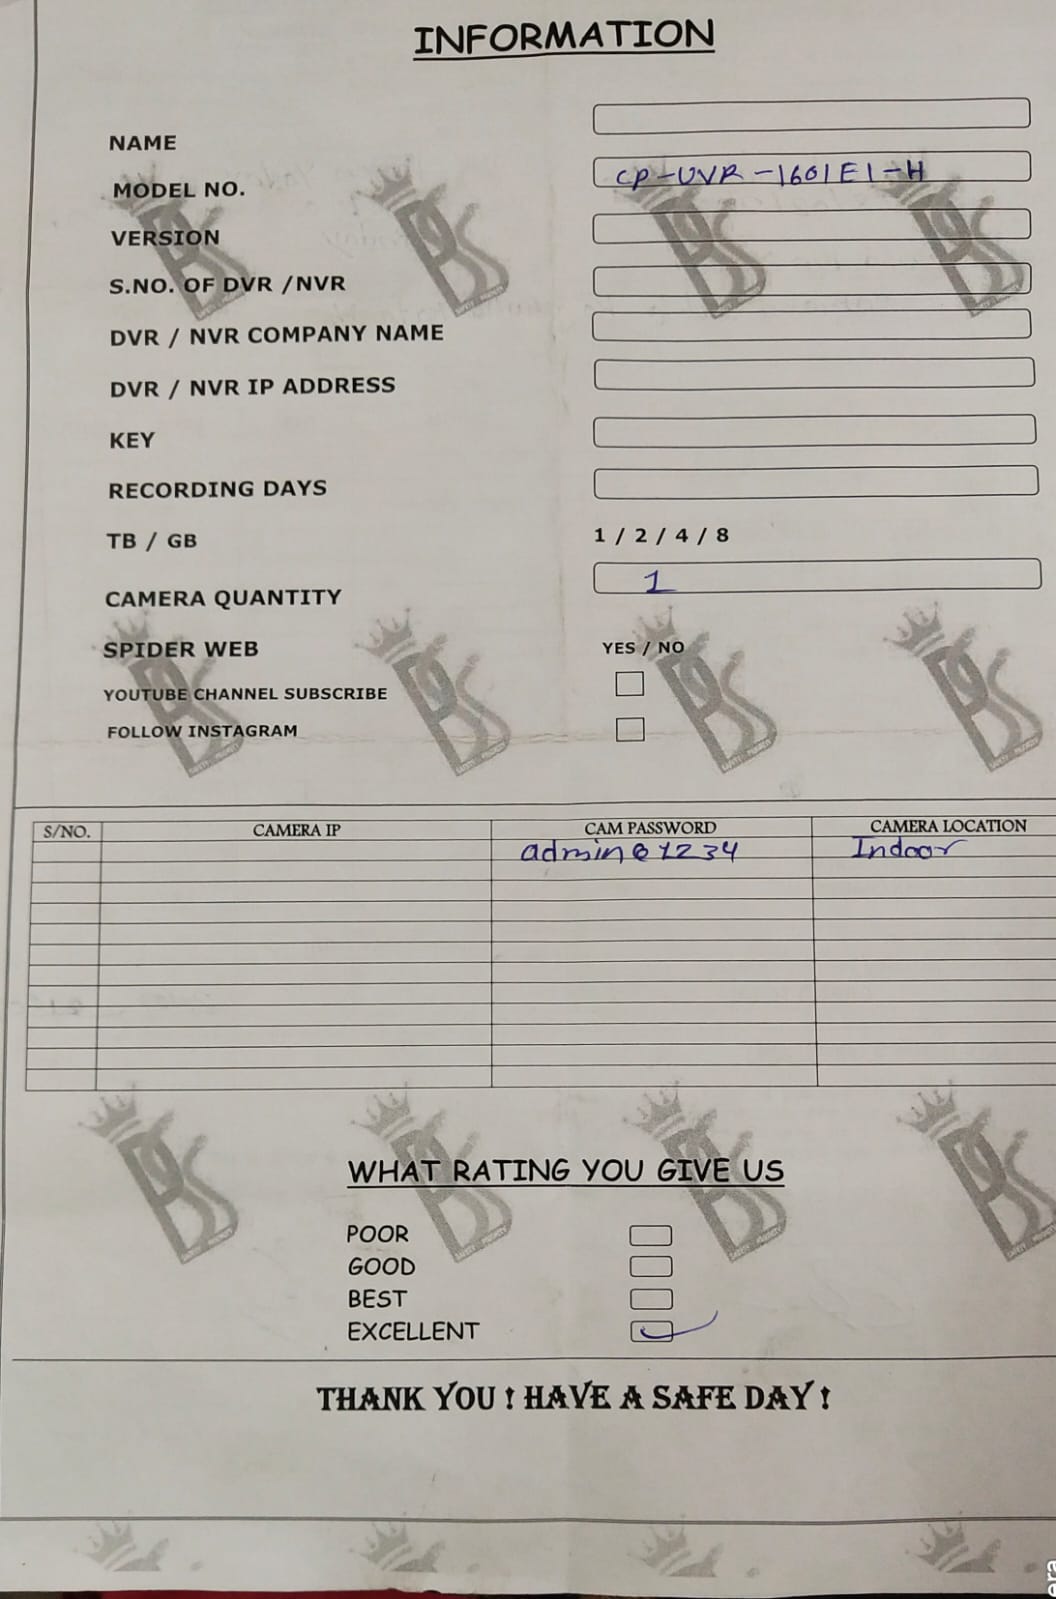 INFORMATION
NAME
MODEL NO. CP-UVR-1601E1-H
VERSION
S.NO. OF DVR /NVR
DVR / NVR COMPANY NAME
DVR / NVR IP ADDRESS
KEY
RECORDING DAYS
TB / GB 1 / 2 / 4 / 8
CAMERA QUANTITY 1
SPIDER WEB YES / NO
YOUTUBE CHANNEL SUBSCRIBE
FOLLOW INSTAGRAM
S/NO. CAMERA IP CAM PASSWORD CAMERA LOCATION
admin@1234 Indoor
WHAT RATING YOU GIVE US
POOR
GOOD
BEST
EXCELLENT
THANK YOU ! HAVE A SAFE DAY !